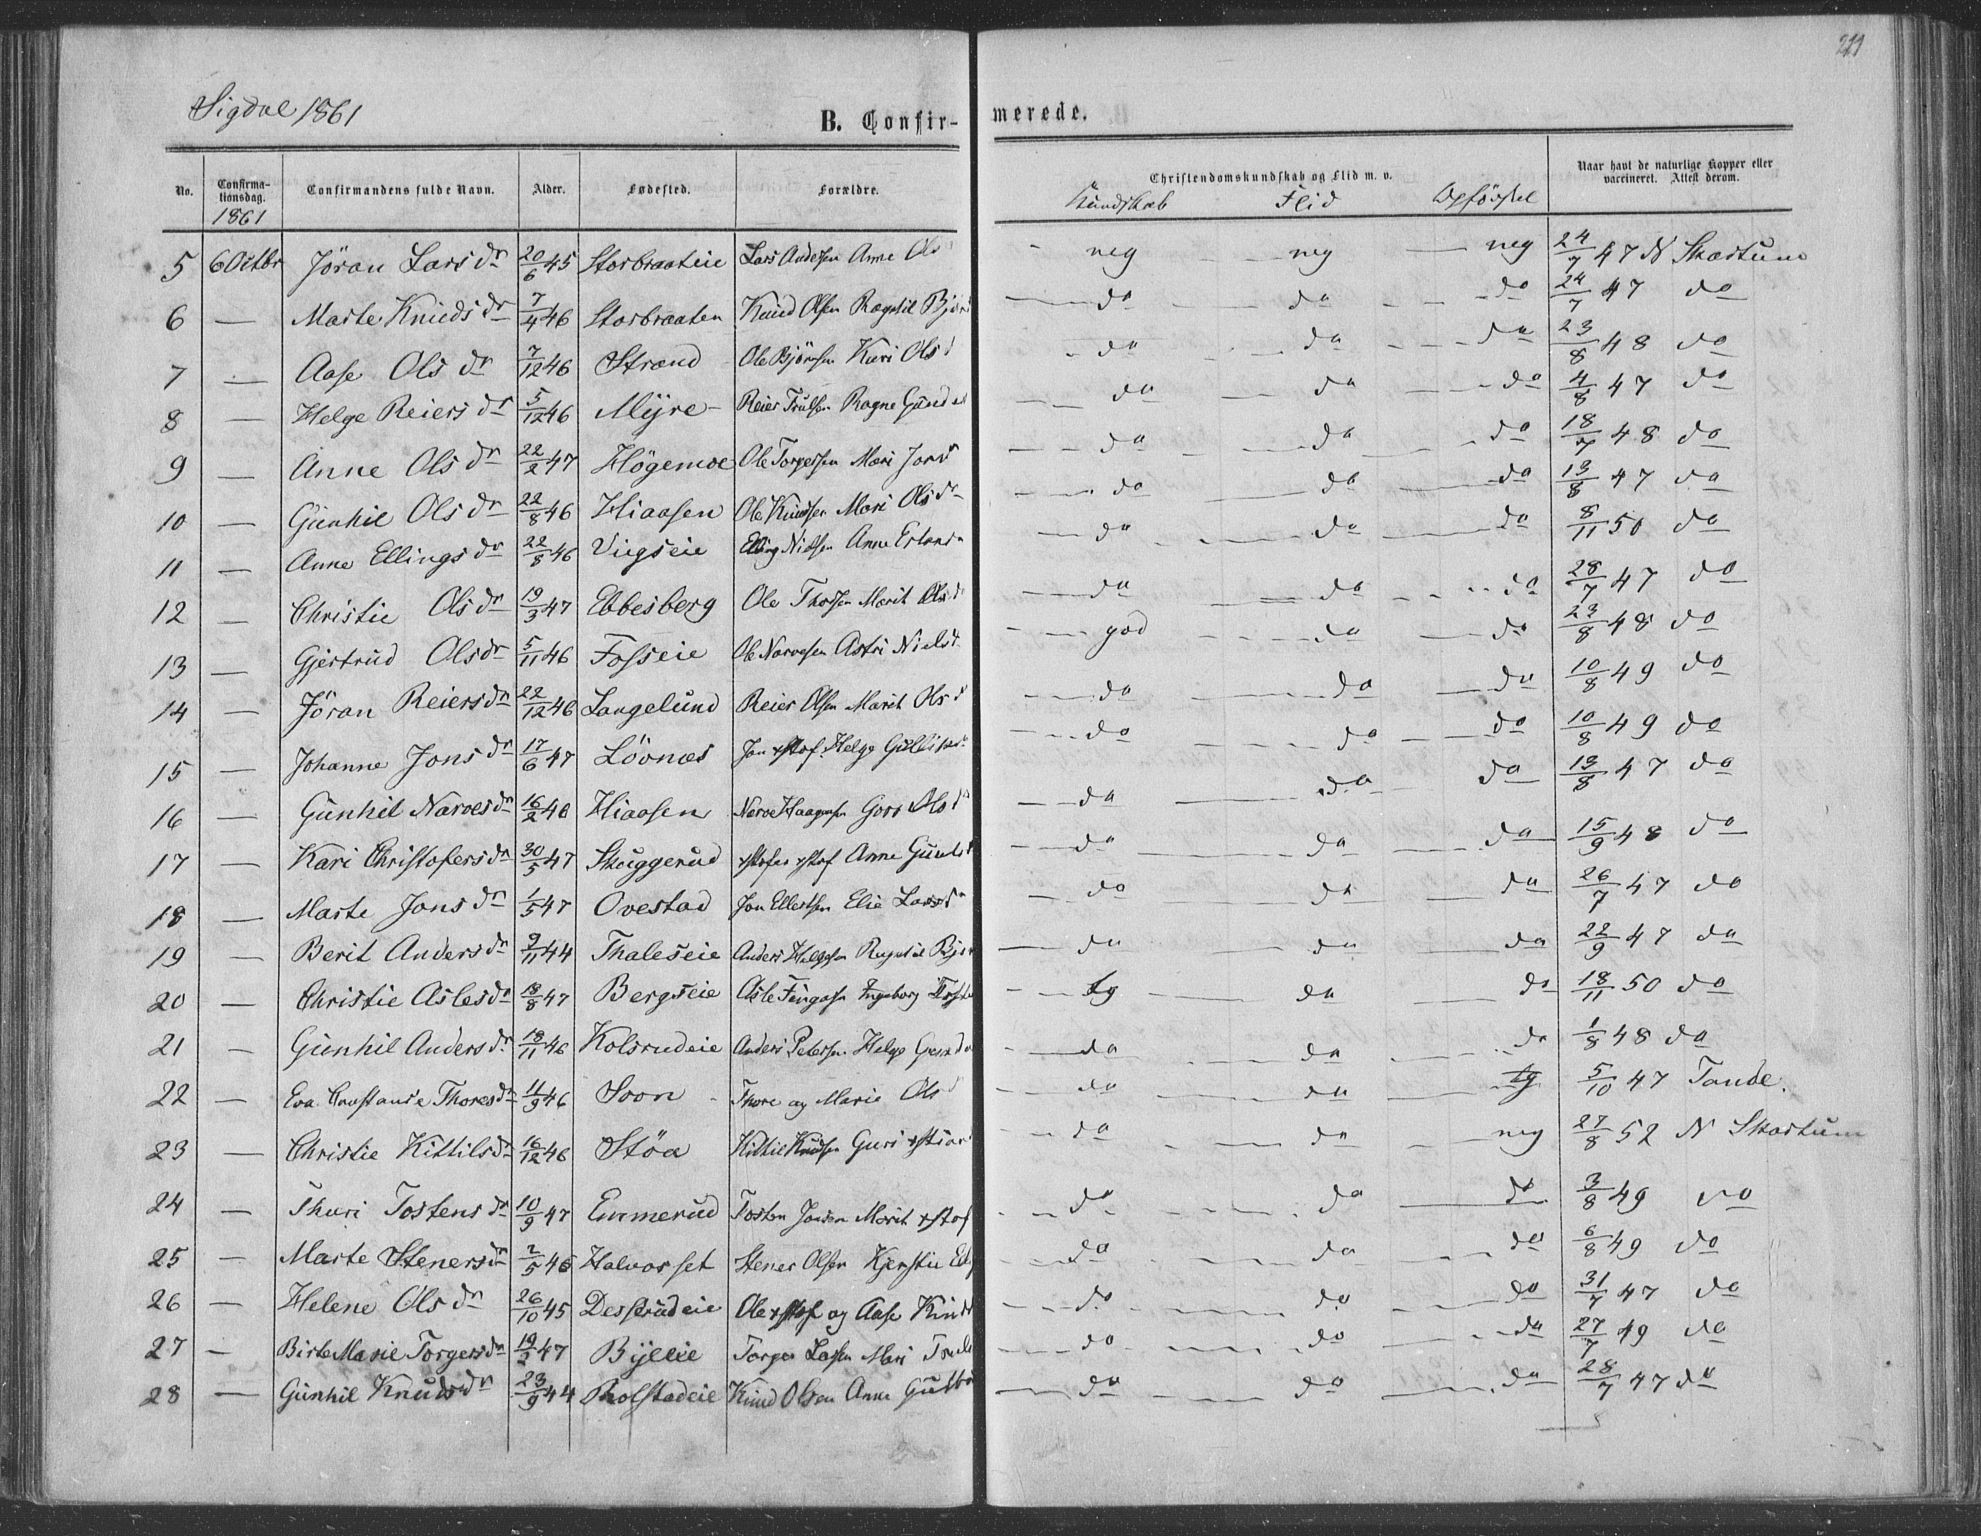 211
Sigdal 1861
B. Confir- merede.
No. Confirma-tionsdag. Confirmandens fulde Navn. Alder. Fødested. Forældre. Christendomskundskab og Flid m. v. Naar havt de naturlige Kopper eller vaccineret. Attest derom.
1861 Kundskab Flid Opförsel
5 6 Octbr Jöran Larsdr 20/6 45 Storbraateie Lars Andersen Anne Ols neg neg neg 24/7 47 N Skartum
6 — Marte Knudsdr 7/4 46 Storbraaten Knud Olsen Ragnhil do do do 24/7 47 do
7 — Aase Olsdr 7/12 46 Strand Ole Björnsen Kari Olsd do do do 23/8 48 do
8 — Helge Reiersdr 5/12 46 Myre Reier Trulsen Ragne do do do 4/8 47 do
9 — Anne Olsdr 22/2 47 Högemoe Ole Torgersen Mari Jonsd do do do 18/7 48 do
10 — Gunhil Olsdr 22/8 46 Hiaasen Ole Knudsen Mari Olsdr do do do 13/8 47 do
11 — Anne Ellingsdr 22/8 46 Viigseie Elling Nielsen Anne do do do 8/11 50 do
12 — Christie Olsdr 19/3 47 Ebbesberg Ole Thorsen Marit Olsd do do do 28/7 47 do
13 — Gjertrud Olsdr 5/11 46 Fosseie Ole Narvesen Astri Nielsd god do do 23/8 48 do
14 — Jöran Reiersdr 22/12 46 Langelund Reier Olsen Marit Olsd do do do 10/8 49 do
15 — Johanne Jonsdr 17/6 47 Lövnæs Jon xstof. Helge do do do 10/8 49 do
16 — Gunhil Narvesdr 16/2 46 Hiaasen Narve Haagensen Goro Olsd do do do 13/8 47 do
17 — Kari Christofersdr 30/5 47 Skuggerud xstofer xstof Anne do do do 15/9 48 do
18 — Marte Jonsdr 1/5 47 Ovestad Jon Ellertsen Elie Larsd do do do 26/7 47 do
19 — Berit Andersdr 9/11 44 Thaleseie Anders Helgesen do do do 22/9 47 do
20 — Christie Aslesdr 18/8 47 Bergseie Asle Ingeborg tg do do 18/11 50 do
21 — Gunhil Andersdr 18/11 46 Kolsrudeie Anders Petersen Helge do do do 1/8 48 do
22 — Eva Constance Thoresdr 11/9 46 Soon Thore og Marie Olsd do do tg 5/10 47 Tande.
23 — Christie Kittilsdr 16/12 46 Stöa Kittil Knudsen Guri do do neg 27/8 52 N Skartum
24 — Thuri Tostensdr 10/9 47 Enmerud Tosten Jonsen Marit xstof do do do 3/8 49 do
25 — Marte Stenersdr 2/5 46 Halvorset Stener Olsen Kjerstie do do do 6/8 49 do
26 — Helene Olsdr 26/10 45 Desserudeie Ole xstof og Aase do do do 31/7 47 do
27 — Birte Marie Torgersdr 19/2 47 Torger Larsen Mari do do do 27/7 49 do
28 — Gunhil Knudsdr 23/9 44 Rolstadeie Knud Olsen Anne do do do 28/7 47 do